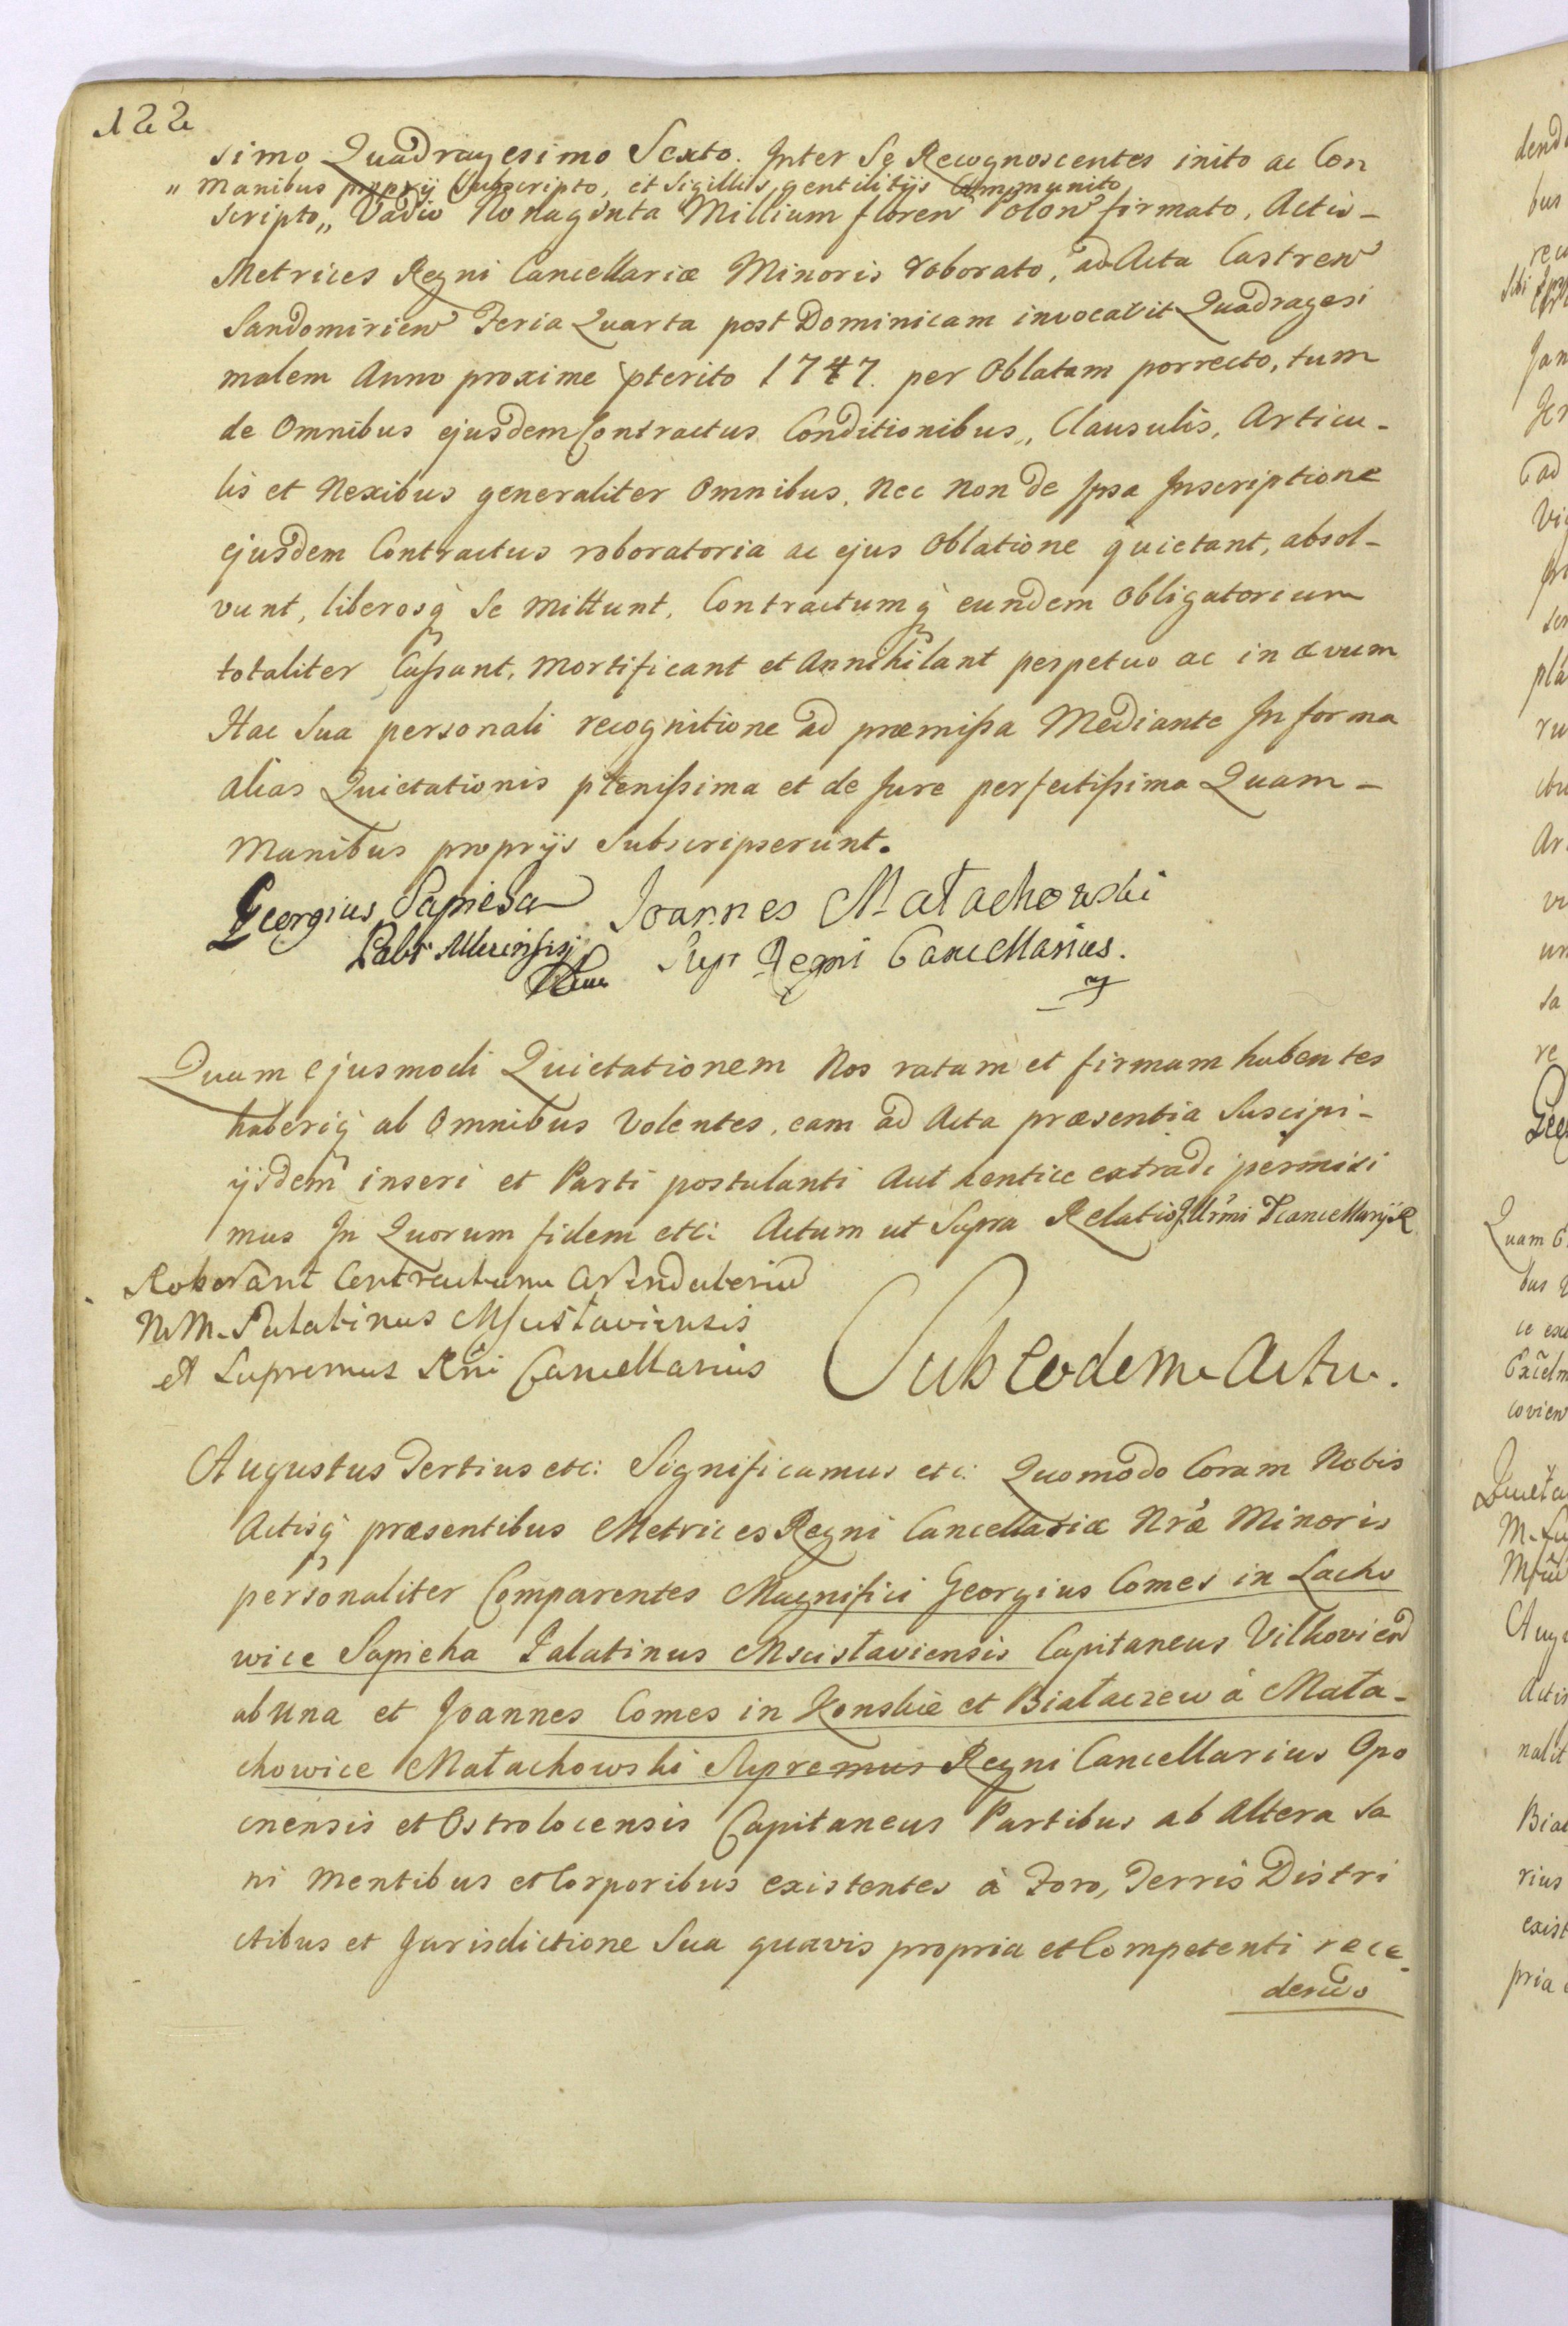 122
simo Quadragesimo Sexto. Inter Se Recognoscentes inito ac Con
„ Manibus proprij Subscripto, et Sigillis gentilitijs Communito
scripto„ Vadio Nonaginta Millium floren Polon firmato, Actis-
Metrices Regni Cancellariæ Minoris roborato, ad Acta Castren
Sandomirien Feria Quarta post Dominicam invocavit Quadragesi
malem Anno proxime pterito 1747. per Oblatam porrecto, tum
de Omnibus ejusdem Contractus Conditionibus, Clausulis, Articu-
lis et Nexibus generaliter Omnibus, Nec Non de Ipsa Inscriptione
ejusdem Contractus roboratoria ac ejus Oblatione quietant, absol-
vunt, liberosq̀ Se Mittunt, Contractumq̀ eundem Obligatorium
totaliter Caſsant, Mortificant et Annihilant perpetuo ac in ævum
Hac Sua personali recognitione ad præmiſsa Mediante In forma
alias Quietationis pleniſsima et de Jure perfectiſsima Quam-
Manibus proprijs Subscripserunt.
Georgius Sapieha Joannes Małachowski
Sup Regni Cancellarius.
Quam Ejusmodi Quietationem Nos ratam et firmam habentes
haberiq̀ ab Omnibus Volentes, eam ad Acta præsentia Suscipi-
ijsdem inseri et Parti postulanti Authentice extradi permisi
mus In Quorum fidem etc: Actum ut Supra Relatio
Roborant Contractum Arendatorium
MM. Palatinus Mscistaviensis
et Supremus Rni Cancellarius
Sub Eodem Actu.
Augustus Tertius etc: Significamus etc: Quomodo Coram Nobis
Actisq̀ præsentibus Metrices Regni Cancellariæ Nræ Minoris
personaliter Comparentes Magnifici Georgius Comes in Lacho
wice Sapieha Palatinus Mscistaviensis Capitaneus Vilkovien
ab Una et Joannes Comes in Konskie et Białaczew à Mała-
chowice Małachowski Supremus Regni Cancellarius Opo
cnensis et Ostrolocensis Capitaneus Partibus ab Altera Sa
ni Mentibus et Corporibus existentes à Foro, Terris Distri
ctibus et Jurisdictione Sua quavis propria et Competenti rece-
dendo